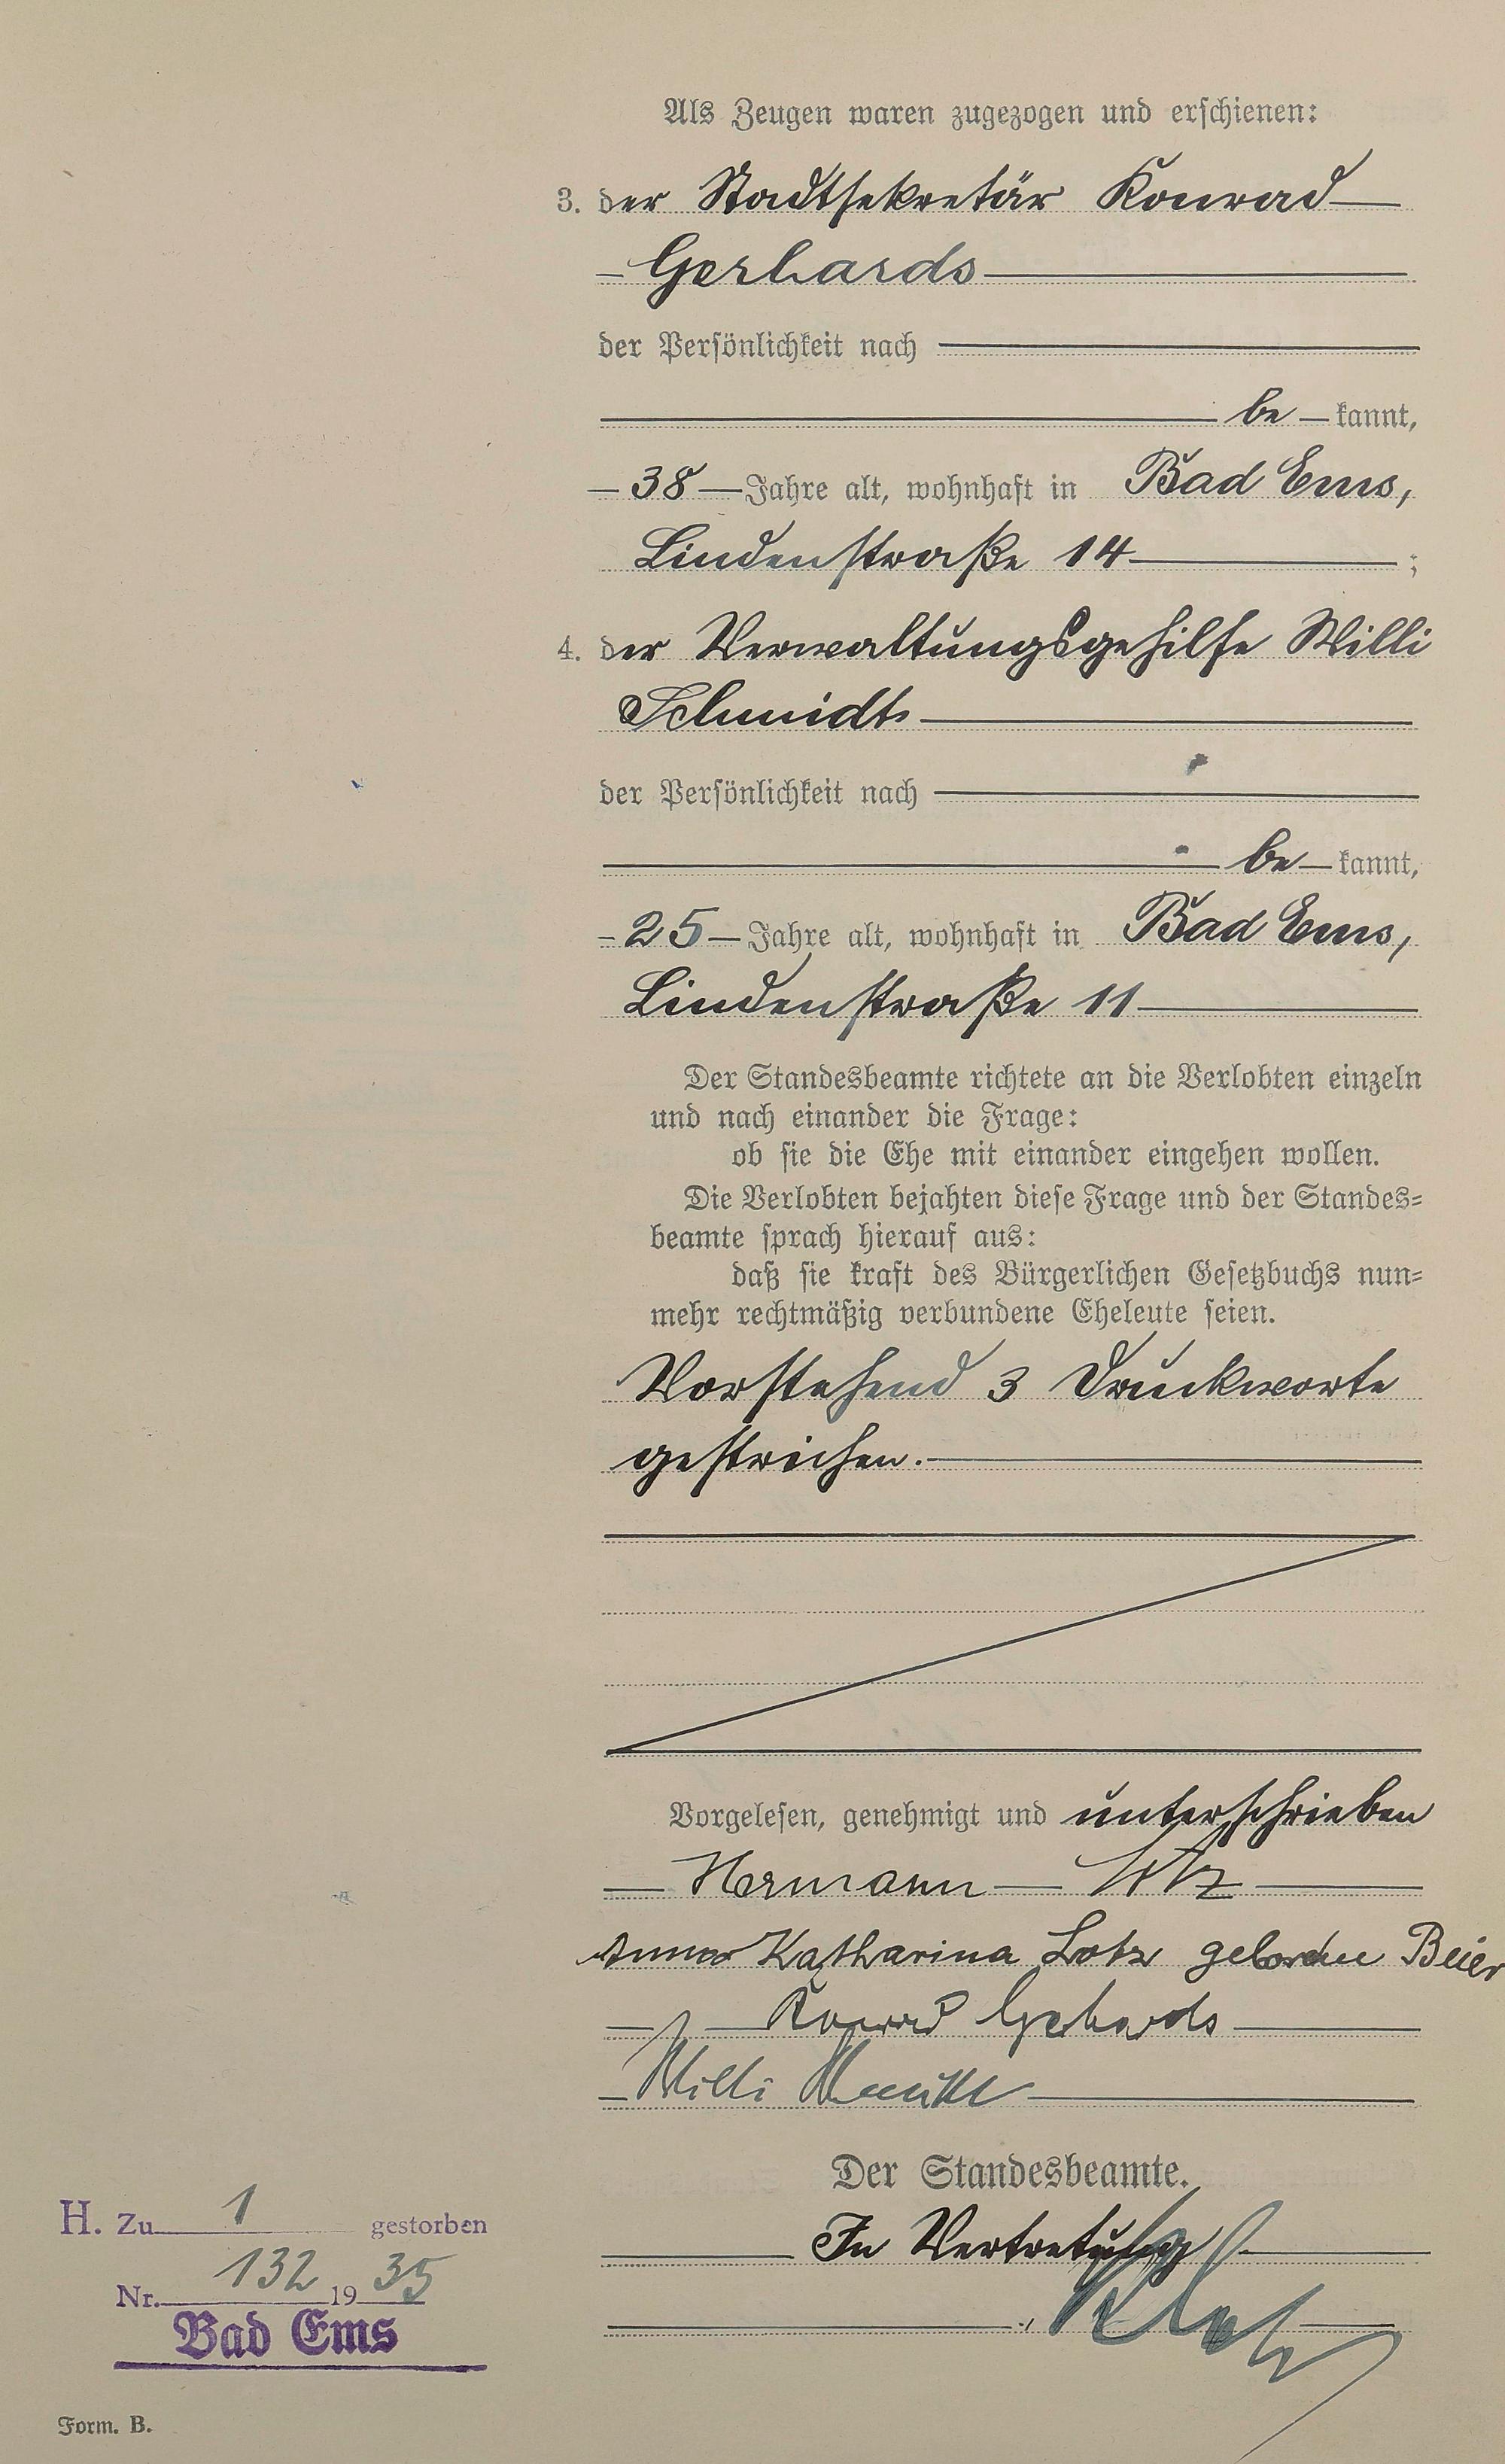 Als Zeugen waren zugezogen und erschienen:
3. der Stadtsekretär Konrad
Gerhards
der Persönlichkeit nach
be kannt,
38 Jahre alt, wohnhaft in Bad Ems,
Lindenstraße 14 ;
4. der Verwaltungsgehilfe Willi
Schmidt
der Persönlichkeit nach
be kannt,
25 Jahre alt, wohnhaft in Bad Ems,
Lindenstraße 11
Der Standesbeamte richtete an die Verlobten einzeln
und nach einander die Frage:
ob sie die Ehe mit einander eingehen wollen.
Die Verlobten bejahten diese Frage und der Standes=
beamte sprach hierauf aus:
daß sie kraft des Bürgerlichen Gesetzbuchs nun=
mehr rechtmäßig verbundene Eheleute seien.
Vorstehend 3 Druckworte
gestrichen.
Vorgelesen, genehmigt und unterschrieben
Hermann Lotz
Anna Katharina Lotz geborene Beier
Konrad Gerhards
Willi Schmidt
Der Standesbeamte.
In Vertretung
H. Zu 1 gestorben
Nr. 132 19 35
Bad Ems
Form. B.